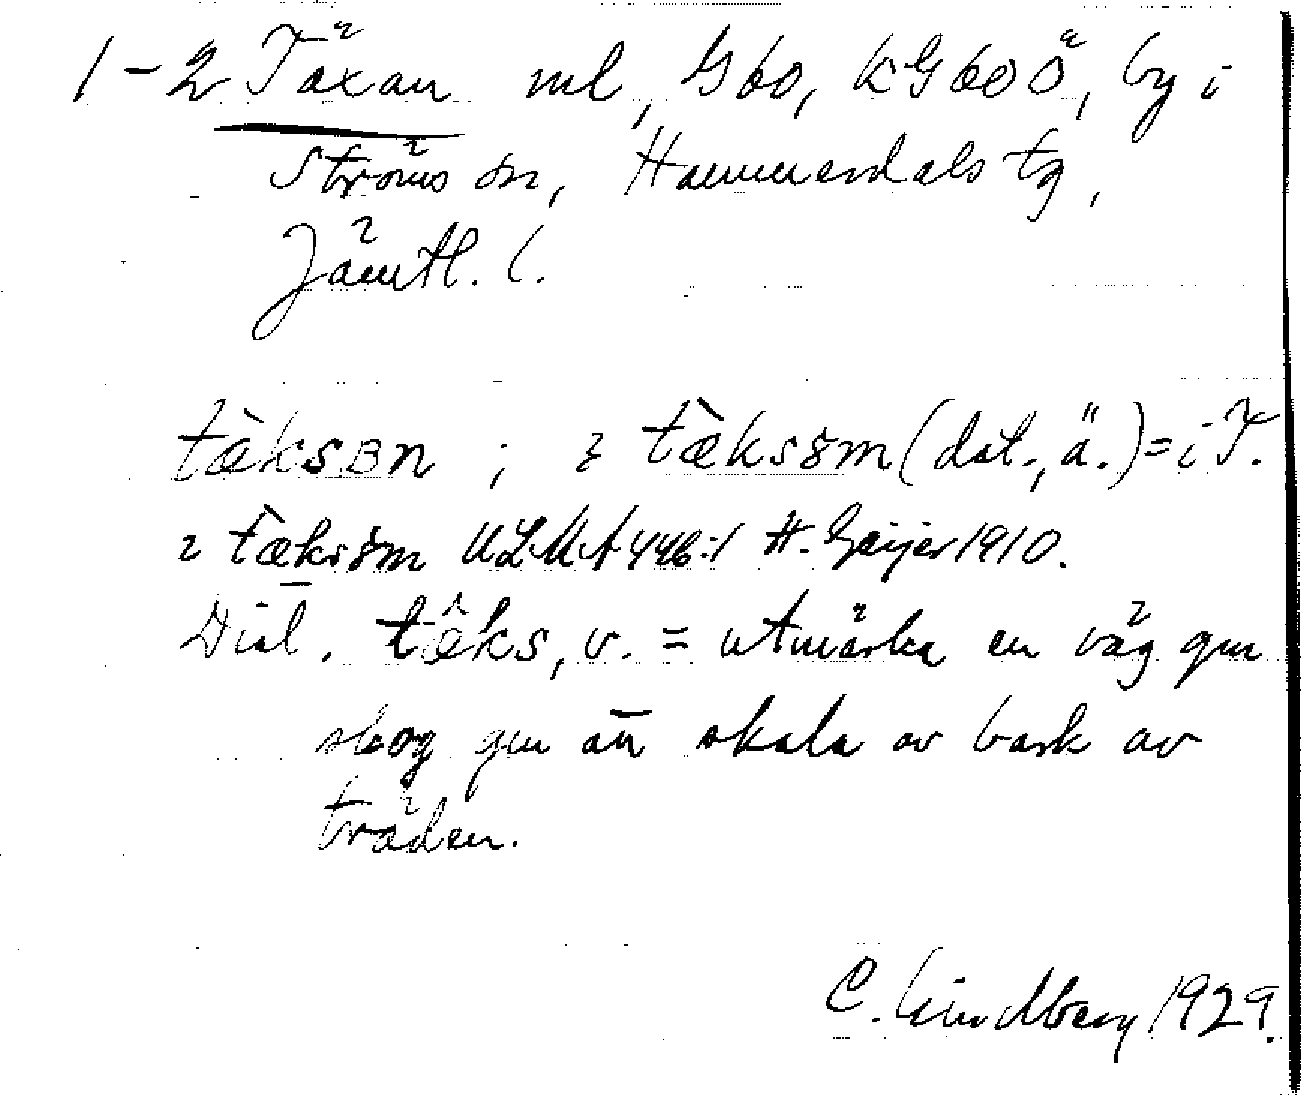 1-2 Täxan ml, G60, KG60Ö, by i
Ströms sn, Hammerdals tg,
Jämtl. l.
tæ̀ksɞn ; i tæ̀ksɵm (dat., ä.) = i T.
i tæ̀ksɵm ULMA 446:1 H. Geijer 1910.
Dial. tæ̂ks, v. = utmärka en väg gm
skog gm att skala av bark av
träden.
C. Lindberg 1929.